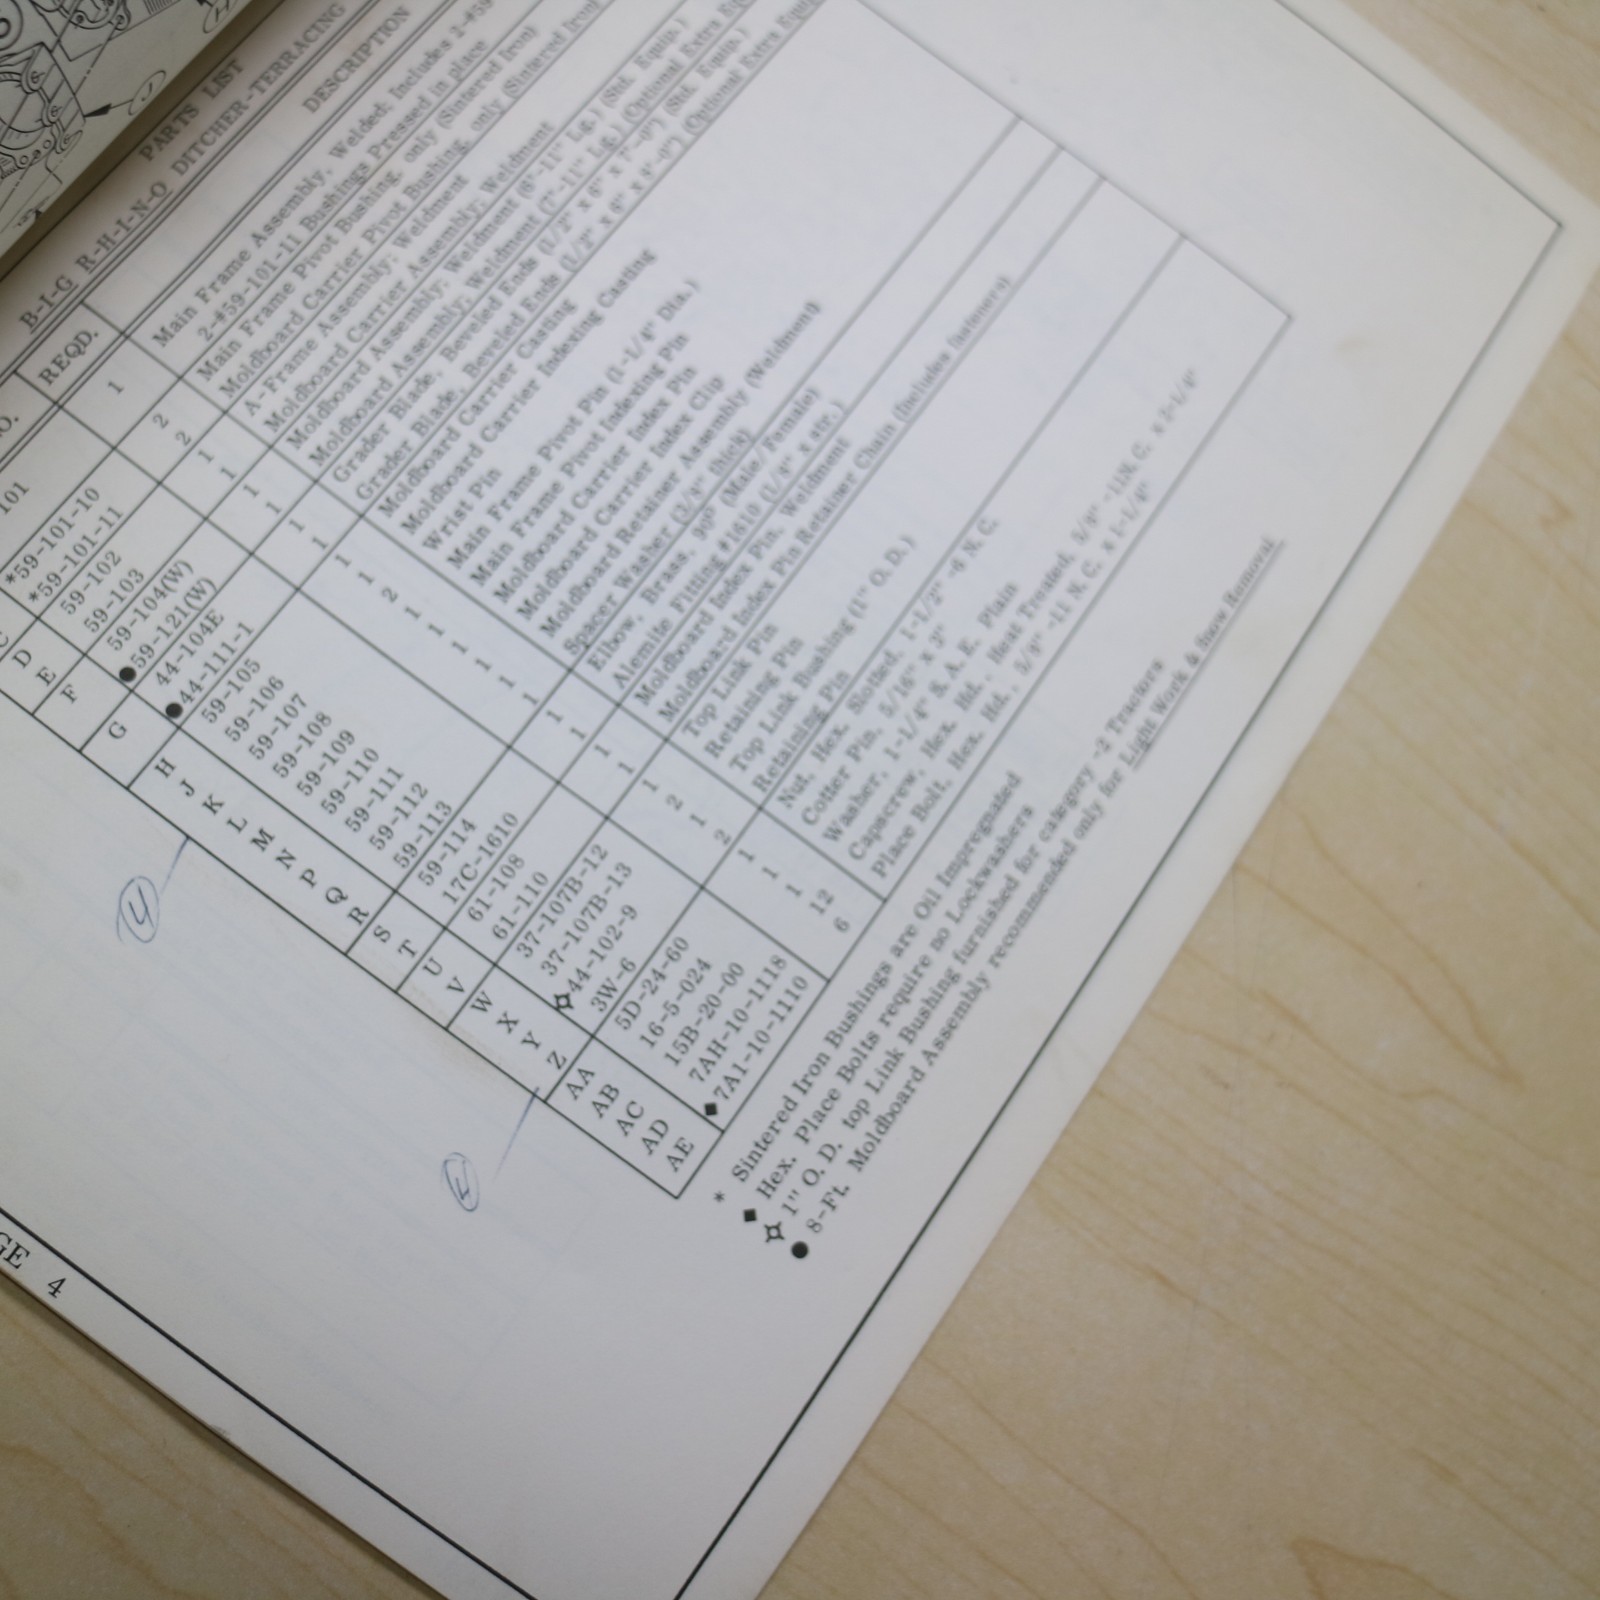 PARTS LIST
B-I-G R-H-I-N-O DITCHER-TERRACING
O. REQD. DESCRIPTION
101 1 Main Frame Assembly, Welded; Includes 2-#59
2-#59-101-11 Bushings Pressed in place
*59-101-10 2 Main Frame Pivot Bushing, only (Sintered Iron)
C *59-101-11 2 Moldboard Carrier Pivot Bushing, only (Sintered Iron)
D 59-102 1 A-Frame Assembly; Weldment
E 59-103 1 Moldboard Carrier Assembly; Weldment
F 59-104(W) 1 Moldboard Assembly; Weldment (6'-11" Lg.) (Std. Equip.)
●59-121(W) 1 Moldboard Assembly; Weldment (7'-11" Lg.) (Optional Extra Equ
G 44-104E 1 Grader Blade, Beveled Ends (1/2" x 6" x 7'-0") (Std. Equip.)
●44-111-1 1 Grader Blade, Beveled Ends (1/2" x 6" x 8'-0") (Optional Extra Equi
H 59-105 1 Moldboard Carrier Casting
J 59-106 1 Moldboard Carrier Indexing Casting
K 59-107 2 Wrist Pin
L 59-108 1 Main Frame Pivot Pin (1-1/4" Dia.)
M 59-109 1 Main Frame Pivot Indexing Pin
N 59-110 1 Moldboard Carrier Index Pin
P 59-111 1 Moldboard Carrier Index Clip
Q 59-112 1 Moldboard Retainer Assembly (Weldment)
R 59-113 1 Spacer Washer (3/4" thick)
S 59-114 1 Elbow, Brass, 90° (Male/Female)
T 17C-1610 1 Alemite Fitting #1610 (1/4" x str.)
U 61-108 1 Moldboard Index Pin, Weldment
V 61-110 1 Moldboard Index Pin Retainer Chain (Includes fasteners)
W 37-107B-12 1 Top Link Pin
X 37-107B-13 2 Retaining Pin
Y ✧44-102-9 1 Top Link Bushing (1" O. D.)
Z 3W-6 2 Retaining Pin
AA 5D-24-60 1 Nut, Hex. Slotted, 1-1/2" -6 N. C.
AB 16-5-024 1 Cotter Pin, 5/16" x 3"
AC 15B-20-00 1 Washer, 1-1/4" S. A. E. Plain
AD 7AH-10-1118 12 Capscrew, Hex. Hd., Heat Treated, 5/8" -11N. C. x 2-1/4"
AE ◆7A1-10-1110 6 Place Bolt, Hex. Hd., 5/8" -11 N. C. x 1-1/4"
* Sintered Iron Bushings are Oil Impregnated
◆ Hex. Place Bolts require no Lockwashers
✧ 1" O. D. top Link Bushing furnished for category -2 Tractors
● 8-Ft. Moldboard Assembly recommended only for Light Work & Snow Removal
GE 4